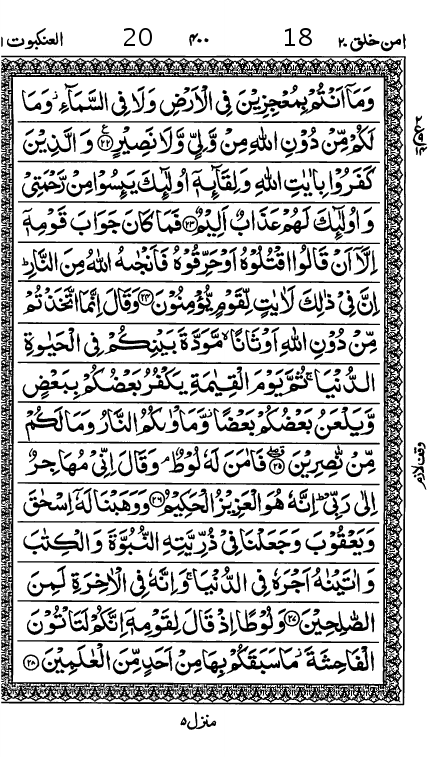 امن خلق ٢٠ 18 ٤٠٠ 20 العنكبوت
وَمَآ اَنْتُمْ بِمُعْجِزِيْنَ فِي الْاَرْضِ وَلَا فِي السَّمَآءِ ۫ وَمَا
لَكُمْ مِّنْ دُوْنِ اللّٰهِ مِنْ وَّلِيٍّ وَّلَا نَصِيْرٍ ﴿٢٢﴾ وَ الَّذِيْنَ
كَفَرُوْا بِاٰيٰتِ اللّٰهِ وَلِقَآئِهٖٓ اُولٰٓئِكَ يَئِسُوْا مِنْ رَّحْمَتِيْ
وَ اُولٰٓئِكَ لَهُمْ عَذَابٌ اَلِيْمٌ ﴿٢٣﴾ فَمَا كَانَ جَوَابَ قَوْمِهٖٓ
اِلَّآ اَنْ قَالُوا اقْتُلُوْهُ اَوْ حَرِّقُوْهُ فَاَنْجٰىهُ اللّٰهُ مِنَ النَّارِ ؕ
اِنَّ فِيْ ذٰلِكَ لَاٰيٰتٍ لِّقَوْمٍ يُّؤْمِنُوْنَ ﴿٢٤﴾ وَقَالَ اِنَّمَا اتَّخَذْتُمْ
مِّنْ دُوْنِ اللّٰهِ اَوْثَانًا ۙ مَّوَدَّةَ بَيْنِكُمْ فِي الْحَيٰوةِ
الدُّنْيَا ۚ ثُمَّ يَوْمَ الْقِيٰمَةِ يَكْفُرُ بَعْضُكُمْ بِبَعْضٍ
وَّيَلْعَنُ بَعْضُكُمْ بَعْضًا ؗ وَّمَاْوٰىكُمُ النَّارُ وَمَا لَكُمْ
مِّنْ نّٰصِرِيْنَ ﴿٢٥﴾ فَاٰمَنَ لَهٗ لُوْطٌ ۘ وَقَالَ اِنِّيْ مُهَاجِرٌ
اِلٰى رَبِّيْ ؕ اِنَّهٗ هُوَ الْعَزِيْزُ الْحَكِيْمُ ﴿٢٦﴾ وَوَهَبْنَا لَهٗٓ اِسْحٰقَ
وَيَعْقُوْبَ وَجَعَلْنَا فِيْ ذُرِّيَّتِهِ النُّبُوَّةَ وَ الْكِتٰبَ
وَ اٰتَيْنٰهُ اَجْرَهٗ فِي الدُّنْيَا ۚ وَاِنَّهٗ فِي الْاٰخِرَةِ لَمِنَ
الصّٰلِحِيْنَ ﴿٢٧﴾ وَلُوْطًا اِذْ قَالَ لِقَوْمِهٖٓ اِنَّكُمْ لَتَاْتُوْنَ
الْفَاحِشَةَ ؗ مَا سَبَقَكُمْ بِهَا مِنْ اَحَدٍ مِّنَ الْعٰلَمِيْنَ ﴿٢٨﴾
وقف لازم
منزل ٥